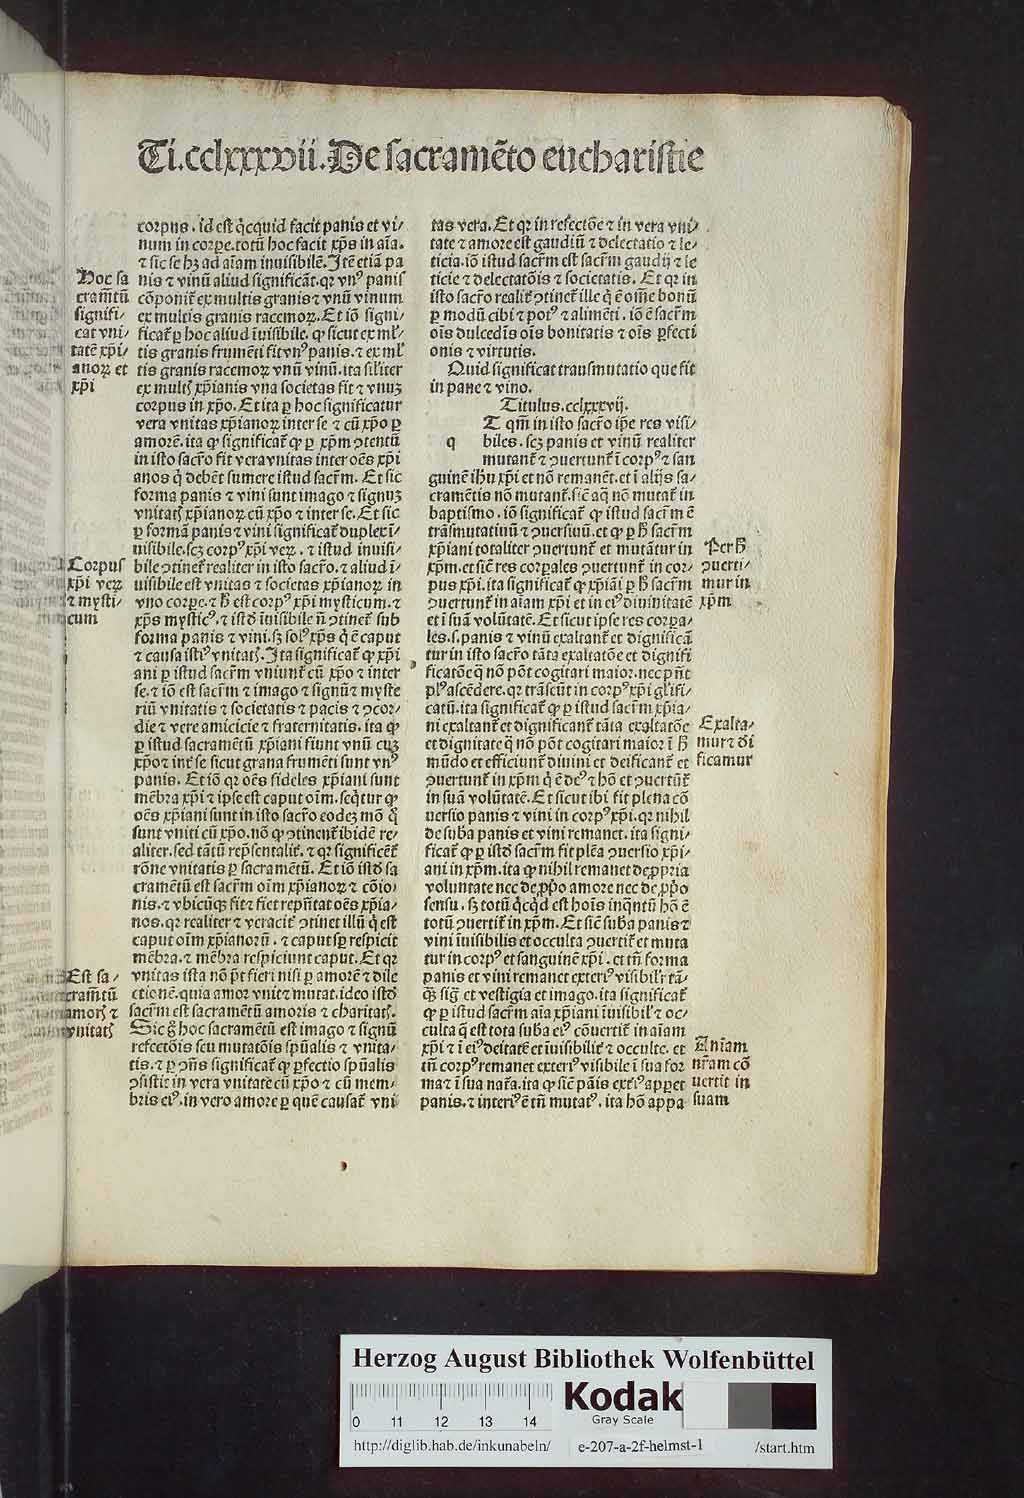 Ti.cclxxxvii.De sacramēto eucharistie
corpus. id est q̇cquid facit panis et vi⸗
num in corꝑe. totū hoc facit xp̄s in aīa.
⁊ sic se hꝫ ad aīam inuisibilē. Itē etiā pa
nis ⁊ vinū aliud significāt. qꝛ vnꝰ panis
cōponit᷑ ex multis granis ⁊ vnū vinum
ex multis granis racemoꝝ. Et iō signi⸗
ficat᷑ ꝑ hoc aliud īuisibile. ꝙ sicut ex ml̕⸗
tis granis frumēti fit vnꝰ panis. ⁊ ex ml̕
tis granis racemoꝝ vnū vinū. ita sil̕iter
ex multꝭ xp̄ianis vna societas fit ⁊ vnuꝫ
corpus in xp̄o. Et ita ꝑ hoc significatur
vera vnitas xp̄ianoꝝ inter se ⁊ cū xp̄o ꝑ
amorē. ita ꝙ significat᷑ ꝙ ꝑ xp̄m ꝯtentū
in isto sacr̄o fit vera vnitas inter oēs xp̄i
anos q̇ debēt sumere istud sacr̄m. Et sic
forma panis ⁊ vini sunt imago ⁊ signuꝫ
vnitatꝭ xp̄ianoꝝ cū xp̄o ⁊ inter se. Et sic
ꝑ formā panis ⁊ vini significat᷑ duplex ī⸗
uisibile. scꝫ corpꝰ xp̄i veꝝ. ⁊ istud inuisi⸗
bile ꝯtinet᷑ realiter in isto sacr̄o. ⁊ aliud ī⸗
uisibile est vnitas ⁊ societas xp̄ianoꝝ in
vno corꝑe. ⁊ ħ est corpꝰ xp̄i mysticum. ⁊
xp̄s mysticꝰ. ⁊ istđ īuisibile n̄ ꝯtinet᷑ sub
forma panis ⁊ vini. sꝫ solꝰ xp̄s q̇ ē caput
⁊ causa istiꝰ vnitatꝭ. Ita significat᷑ ꝙ xp̄i
ani ꝑ istud sacr̄m vniunt᷑ cū xp̄o ⁊ inter
se. ⁊ iō est sacr̄m ⁊ imago ⁊ signū ⁊ myste
riū vnitatis ⁊ societatis ⁊ pacis ⁊ ꝯcor⸗
die ⁊ vere amicicie ⁊ fraternitatis. ita ꝙ
ꝑ istud sacramētū xp̄iani fiunt vnū cuꝫ
xp̄o ⁊ int᷑ se sicut grana frumēti sunt vnꝰ
panis. Et iō qꝛ oēs fideles xp̄iani sunt
mēbra xp̄i ⁊ ipse est caput oīm. seq̇tur ꝙ
oēs xp̄iani sunt in isto sacr̄o eodeꝫ mō q̇
sunt vniti cū xp̄o. nō ꝙ ꝯtineant᷑ ibidē re⸗
aliter. sed tātū rep̄sentalit᷑. ⁊ qꝛ significēt᷑
rōne vnitatis ꝑ sacramētū. Et iō istđ sa
cramētū est sacr̄m oīm xp̄ianoꝝ ⁊ cōio⸗
nis. ⁊ vbicūqꝫ fit ⁊ fiet rep̄ntat oēs xp̄ia⸗
nos. qꝛ realiter ⁊ veracit᷑ ꝯtinet illū q̇ est
caput oīm xp̄ianorū. ⁊ caput sꝑ respicit
mēbra. ⁊ mēbra respiciunt caput. Et qꝛ
vnitas ista nō p̄t fieri nisi ꝑ amorē ⁊ dile
ctionē. quia amor vnit ⁊ mutat. ideo istđ
sacr̄m est sacramētū amoris ⁊ charitatꝭ.
Sic ḡ hoc sacramētū est imago ⁊ signū
refectōis seu mutatōis sp̄ualis ⁊ vnita⸗
tis. ⁊ ꝑ ꝯn̄s significat᷑ ꝙ ꝑfectio sp̄ualis
ꝯsistit in vera vnitate cū xp̄o ⁊ cū mem⸗
bris eiꝰ. in vero amore ꝑ quē causat᷑ vni
Hoc sa
cramētū
signifi⸗
cat vni⸗
tatē xp̄i⸗
anoꝝ et
xp̄i
Corpus
xp̄i veꝝ
⁊ mysti⸗
cum
Est sa⸗
cramētū
amorꝭ ⁊
vnitatꝭ
tas vera. Et qꝛ in refectōe ⁊ in vera vni⸗
tate ⁊ amore est gaudiū ⁊ delectatio ⁊ le⸗
ticia. iō istud sacr̄m est sacr̄m gaudij ⁊ le
ticie ⁊ delectatōis ⁊ societatis. Et qꝛ in
isto sacr̄o realit᷑ ꝯtinet᷑ ille q̇ ē om̄e bonū
ꝑ modū cibi ⁊ potꝰ ⁊ alimēti. iō ē sacr̄m
oīs dulcedīs oīs bonitatis ⁊ oīs ꝑfecti
onis ⁊ virtutis.
Quid significat transmutatio que fit
in pane ⁊ vino.
Titulus. cclxxxvij.
q T qm̄ in isto sacr̄o ip̄e res visi⸗
biles. scꝫ panis et vinū realiter
mutant᷑ ⁊ ꝯuertunt᷑ ī corpꝰ ⁊ san
guinē ihū xp̄i et nō remanēt. et ī alijs sa⸗
cramētis nō mutant᷑. sic̄ aq̄ nō mutat᷑ in
baptismo. iō significat᷑ ꝙ istud sacr̄m ē
trāsmutatiuū ⁊ ꝯuersiuū. et ꝙ ꝑ ħ sacr̄m
xp̄iani totaliter ꝯuertunt᷑ et mutātur in
xp̄m. et sic̄ res corꝑales ꝯuertunt᷑ in cor⸗
pus xp̄i. ita significat᷑ ꝙ xp̄iāi ꝑ ħ sacr̄m
ꝯuertunt᷑ in aīam xp̄i et in eiꝰ diuinitatē
et ī suā volūtatē. Et sicut ipse res corꝑa⸗
les. s. panis ⁊ vinū exaltant᷑ et dignificā
tur in isto sacr̄o tāta exaltatōe et dignifi
ficatōe q̄ nō pōt cogitari maior. nec p̄nt
plꝰ ascēdere. qꝛ trāseūt in corpꝰ xp̄i gl̕ifi⸗
catū. ita significat᷑ ꝙ ꝑ istud sacr̄m xp̄ia⸗
ni exaltant᷑ et dignificant᷑ tāta exaltatōe
et dignitate q̄ nō pōt cogitari maior ī ħ
mūdo et efficiunt᷑ diuini et deificant᷑ et
ꝯuertunt᷑ in xp̄m q̇ ē deꝰ ⁊ hō et ꝯuertūt᷑
in suā volūtatē. Et sicut ibi fit plena cō
uersio panis ⁊ vini in corpꝰ xp̄i. qꝛ nihil
de suba panis et vini remanet. ita signi⸗
ficat᷑ ꝙ ꝑ istđ sacr̄m fit plēa ꝯuersio xp̄i⸗
ani in xp̄m. ita ꝙ nihil remanet de ꝓpria
voluntate nec de ꝓp̄o amore nec de ꝓp̄o
sensu. sꝫ totū q̇cq̇d est hoīs inq̄ntū hō ē
totū ꝯuertit᷑ in xp̄m. Et sic̄ suba panis ⁊
vini īuisibilis et occulta ꝯuertit᷑ et muta
tur in corpꝰ et sanguinē xp̄i. et tn̄ forma
panis et vini remanet exteriꝰ visibil̕r tā⸗
q̄ꝫ sig̅ et vestigia et imago. ita significat᷑
ꝙ ꝑ istud sacr̄m aīa xp̄iani īuisibil̕ ⁊ oc⸗
culta q̄ est tota suba eiꝰ cōuertit᷑ in aīam
xp̄i ⁊ ī eiꝰ deitatē et īuisibilit᷑ ⁊ occulte. et
tn̄ corpꝰ remanet exteriꝰ visibile ī sua for
ma ⁊ ī sua nat̄a. ita ꝙ sic̄ pāis ext᷑iꝰ apꝑet
panis. ⁊ interiꝰ ē tn̄ mutatꝰ. ita hō appa
Per ħ
ꝯuerti⸗
mur in
xp̄m
Exalta⸗
mur ⁊ di
ficamur
Aīam
nr̄am cō
uertit in
suam
Herzog August Bibliothek Wolfenbüttel
0 11 12 13 14
Kodak
Gray Scale
http://diglib.hab.de/inkunabeln/ e-207-a-2f-helmst-1 /start.htm